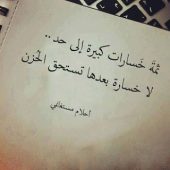 ثمّة خسارات كبيرة إلى حد ..
لا خسارة بعدها تستحق الحُزن
أحلام مستغانمي